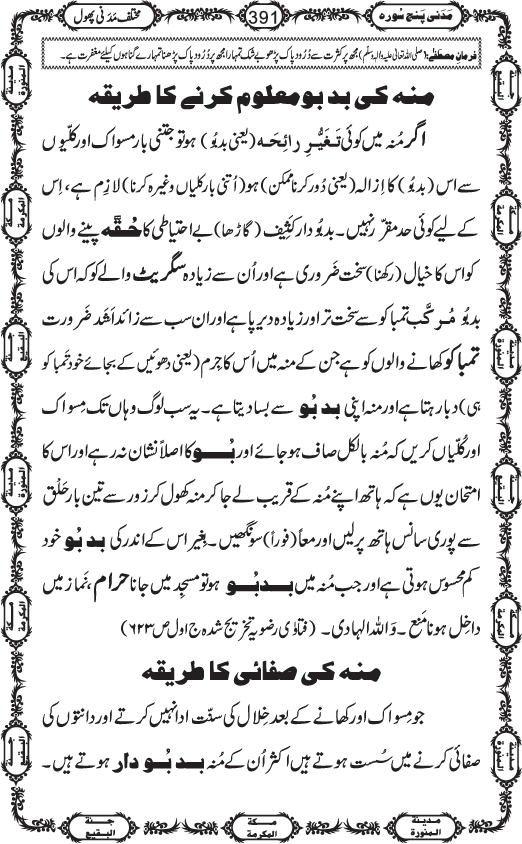 مَدَنی پَنج سُورہ
391
مختلف مَدَنی پھول
فرمانِ مصطفٰے: (صلی اللہ تعالیٰ علیہ والہٖ وسلّم) مجھ پر کثرت سے دُرُودِ پاک پڑھو بے شک تمہارا مجھ پر دُرُودِ پاک پڑھنا تمہارے گناہوں کیلئے مغفرت ہے۔
منہ کی بد بو معلوم کرنے کا طریقہ
اگر مُنہ میں کوئی تَغَیُّرِ رائِحَہ (یعنی بدبُو) ہو تو جتنی بار مسواک اور کلّیوں
سے اس (بدبُو) کا اِزالہ (یعنی دُور کرنا ممکن) ہو (اُتنی بار کلیاں وغیرہ کرنا) لازِم ہے، اِس
کے لیے کوئی حد مقرّر نہیں۔ بدبُودار کَثِیف (گاڑھا) بے احتیاطی کا حُقَّہ پینے والوں
کو اس کا خیال (رکھنا) سخت ضَروری ہے اور اُن سے زیادہ سگریٹ والے کو کہ اس کی
بدبُو مُرکَّب تمباکو سے سخت تر اور زیادہ دیرپا ہے اور ان سب سے زائد اَشَد ضَرورت
تمباکو کھانے والوں کو ہے جن کے منہ میں اُس کا جِرم (یعنی دھوئیں کے بجائے خود تمباکو
ہی) دبا رہتا ہے اور منہ اپنی بدبُو سے بسا دیتا ہے۔ یہ سب لوگ وہاں تک مِسواک
اور کُلّیاں کریں کہ مُنہ بالکل صاف ہو جائے اور بُو کا اصلاً نشان نہ رہے اور اس کا
امتحان یوں ہے کہ ہاتھ اپنے مُنہ کے قریب لے جا کر منہ کھول کر زور سے تین بار حَلْق
سے پوری سانس ہاتھ پر لیں اور معاً (فوراً) سونگھیں۔ بِغیر اس کے اندر کی بدبُو خود
کم محسوس ہوتی ہے اور جب مُنہ میں بدبُو ہو تو مسجِد میں جانا حرام، نَماز میں
داخِل ہونا مَنع۔ وَاللہُ الھادی۔ (فتاوٰی رضویہ تخریج شدہ ج اول ص ۶۲۳)
منہ کی صفائی کا طریقہ
جو مِسواک اور کھانے کے بعد خِلال کی سنّت ادا نہیں کرتے اور دانتوں کی
صفائی کرنے میں سُست ہوتے ہیں اکثر اُن کے مُنہ بدبُودار ہوتے ہیں۔
مدینۃ المنورۃ
مکۃ المکرمۃ
جنۃ البقیع
مدینۃ المنورۃ
مکۃ المکرمۃ
جنۃ البقیع
جنۃ البقیع
مکۃ المکرمۃ
مدینۃ المنورۃ
جنۃ البقیع
مکۃ المکرمۃ
مدینۃ المنورۃ
جنۃ البقیع
مکۃ المکرمۃ
مدینۃ المنورۃ